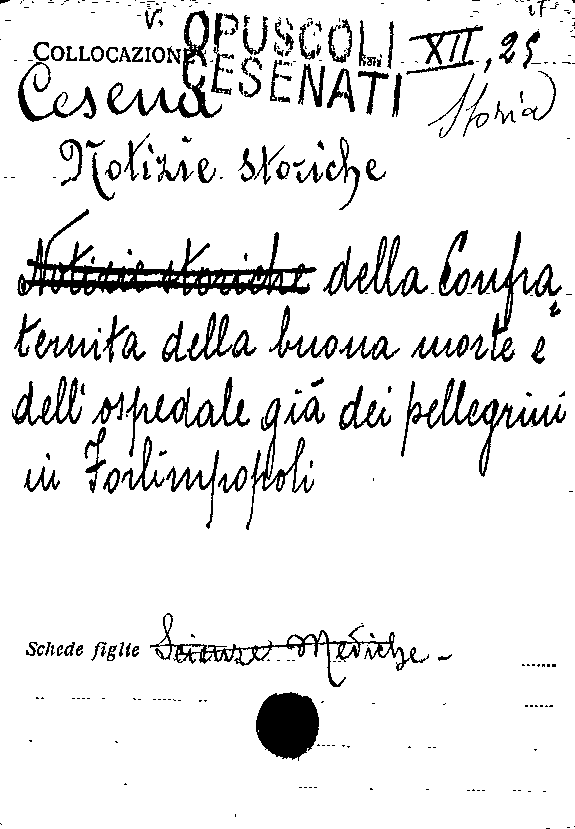 v.
COLLOCAZIONE OPUSCOLI CESENATI XII, 25
Cesena Storia
Notizie storiche
Notizie storiche della Confra
ternita della buona morte e
dell'ospedale già dei pellegrini
in Forlimpopoli
Schede figlie Scienze Mediche -